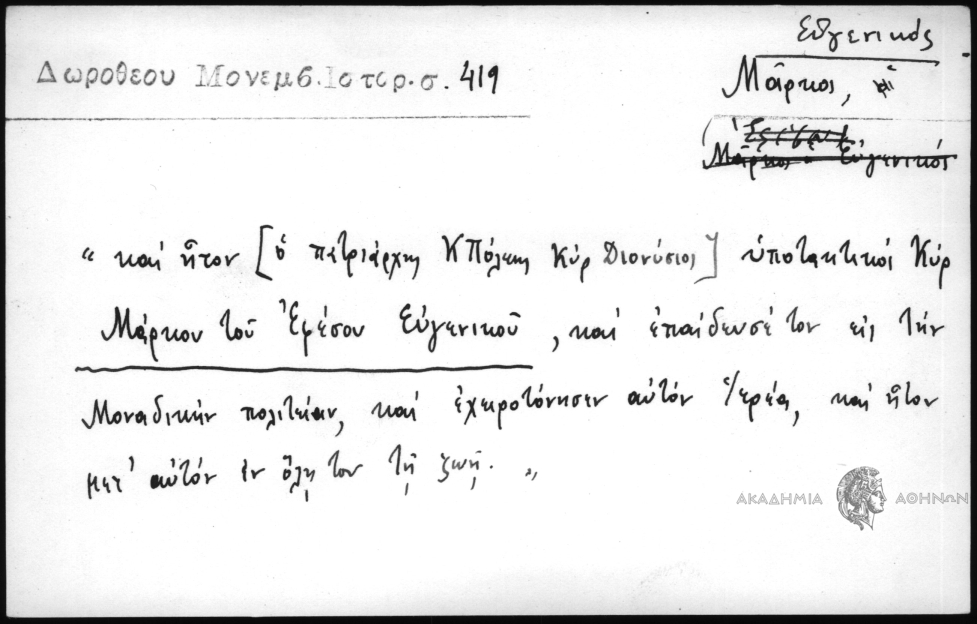 Εὐγενικός
Δωροθεου Μονεμβ.Ιστορ.σ. 419
Μᾶρκος,
Μᾶρκος Εὐγενικός
“ καὶ ἦτον [ὁ πατριάρχης ΚΠόλεως Κύρ Διονύσιος] ὑποτακτικός Κύρ
Μάρκου τοῦ Ἐφέσου Εὐγενικοῦ, καὶ ἐπαίδευσέ τον εἰς τὴν
Μοναδικὴν πολιτείαν, καὶ ἐχειροτόνησεν αὐτόν ἱερέα, καὶ ἦτον
μετ' αὐτόν ἐν ὅλῃ του τῇ ζωῇ. „
ΑΚΑΔΗΜΙΑ ΑΘΗΝΩΝ